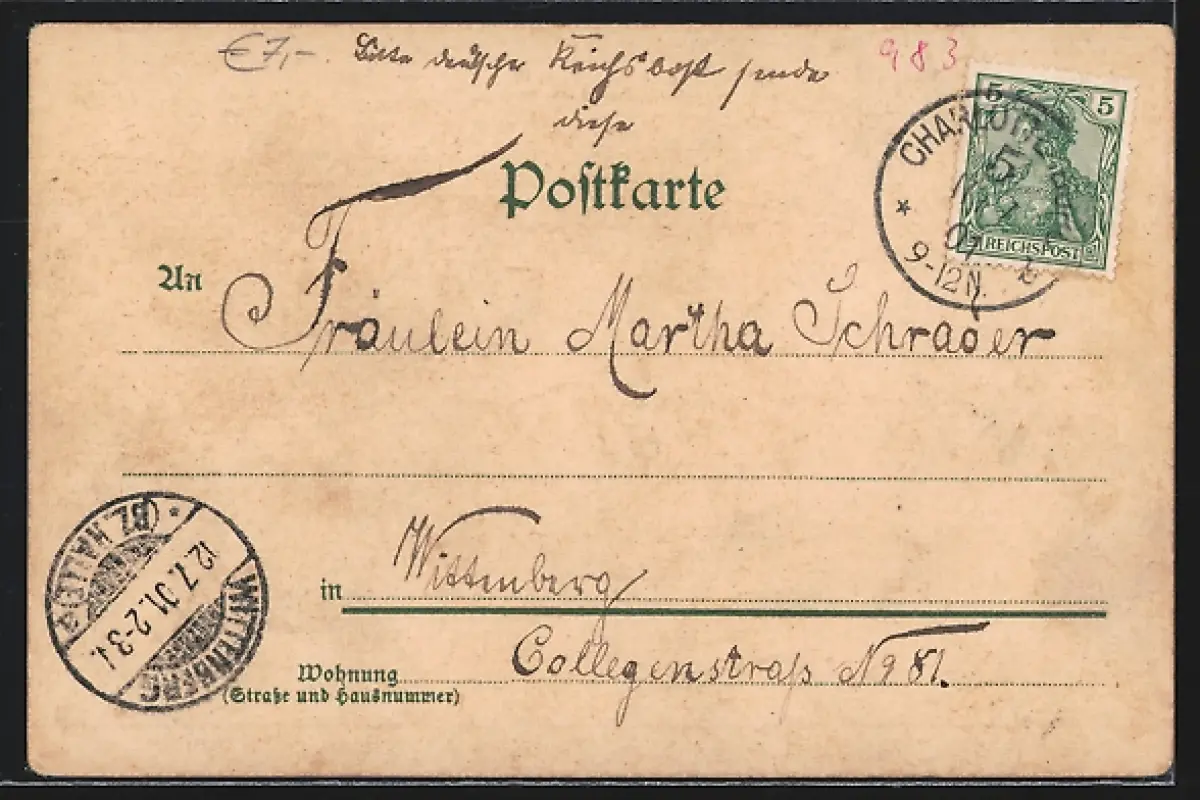 €7,- Bitte deutsche Reichspost sende 983
diese
5 5
REICHSPOST
CHARLOTTENBURG
5
7
01
9-12N.
Postkarte
An Fräulein Martha Schrader
in Wittenberg
Wohnung Collegenstraß No 81.
(Straße und Hausnummer)
WITTENBERG
12.7.01.2-3
(BZ. HALLE)